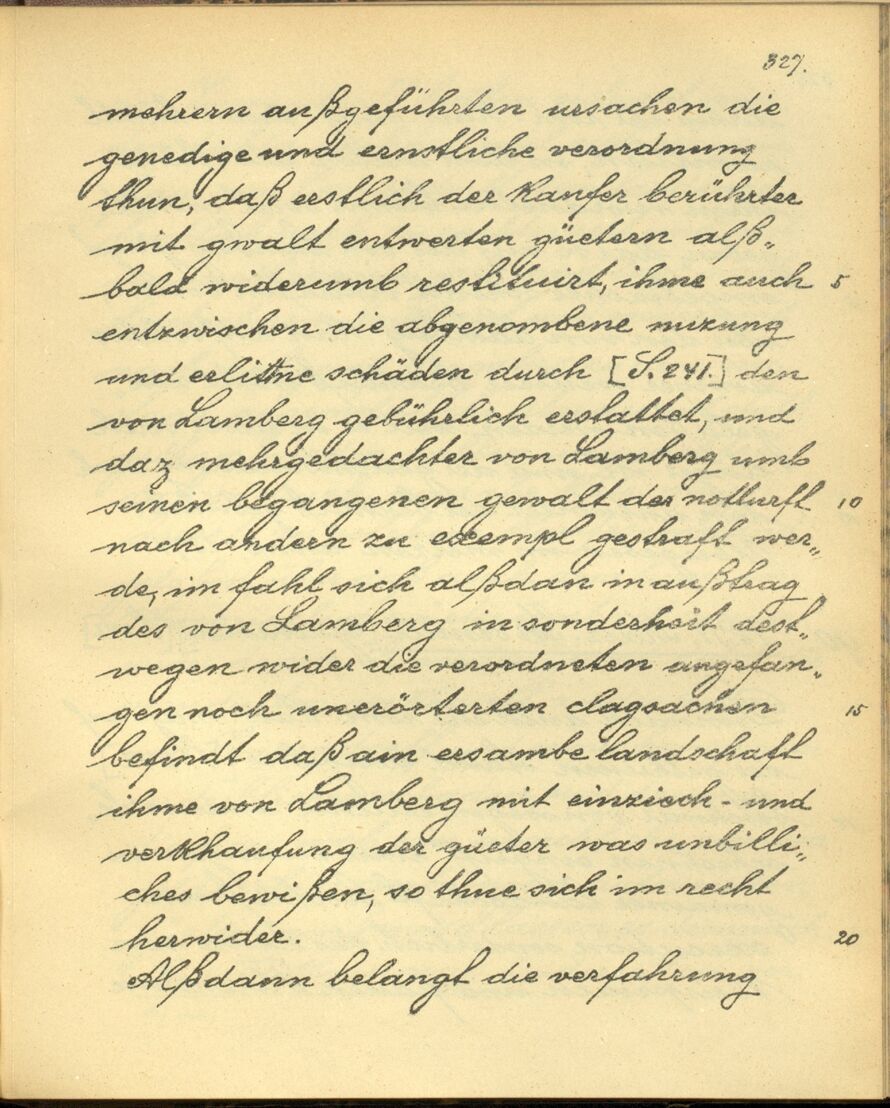 327.
mehrern außgeführten ursachen die
genedige und ernstliche verordnung
thun, daß erstlich der Kaufer berührter
mit gwalt entwerten güetern alß„
bald widerumb restituirt, ihme auch 5
entzwischen die abgenombene nuzung
und erlittne schäden durch [S. 241.] den
von Lamberg gebührlich erstattet, und
daz mehrgedachter von Lamberg umb
seinen begangenen gewalt der notturft 10
nach andern zu exempl gestraft wer„
de, im fahl sich alßdan in außtrag
des von Lamberg in sonderheit dest„
wegen wider die verordneten angefan„
gen noch unerörterten clagsachen 15
befindt daß ain ersambe landschaft
ihme von Lamberg mit einziech- und
verkhaufung der güeter was unbilli„
ches bewißen, so thue sich im recht
herwider. 20
Alßdann belangt die verfahrung